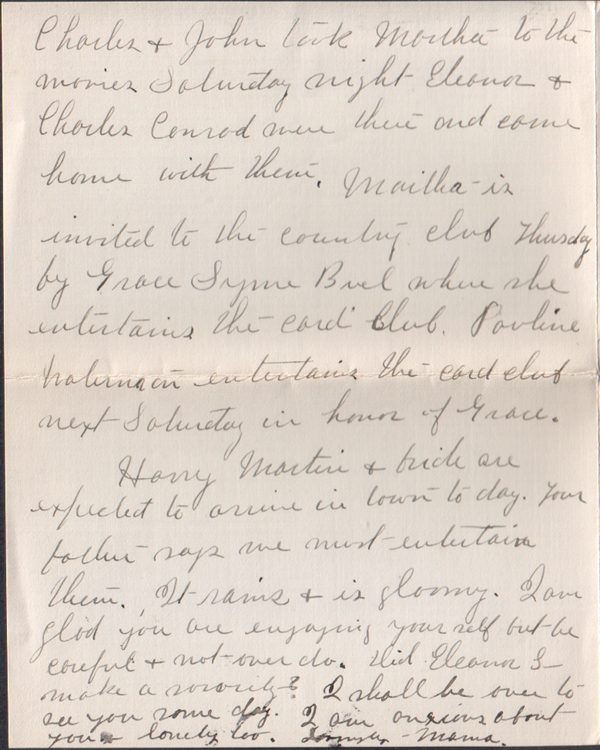 Charles & John took Martha to the
movies Saturday night Eleanor &
Charles Conrad were there and came
home with them. Martha is
invited to the country club Thursday
by Grace Syme Buel where she
entertains the card club. Pauline
entertains the card club
next Saturday in honor of Grace.
Harry Martin & bride are
expected to arrive in town to day. Your
father says we must entertain
them. It rains & is gloomy. I am
glad you are enjoying your self but be
careful & not over do. Did Eleanor S-
make a sorority? I shall be over to
see you some day. I am anxious about
you & lonely too. - Mama.